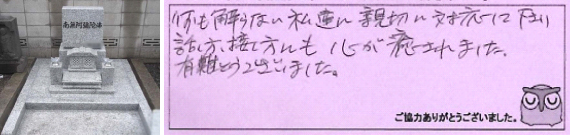 南無阿弥陀佛
何も解らない私達に親切に対応して下さり
話し方、接し方にも心が癒されました。
有難とうございました。
ご協力ありがとうございました。